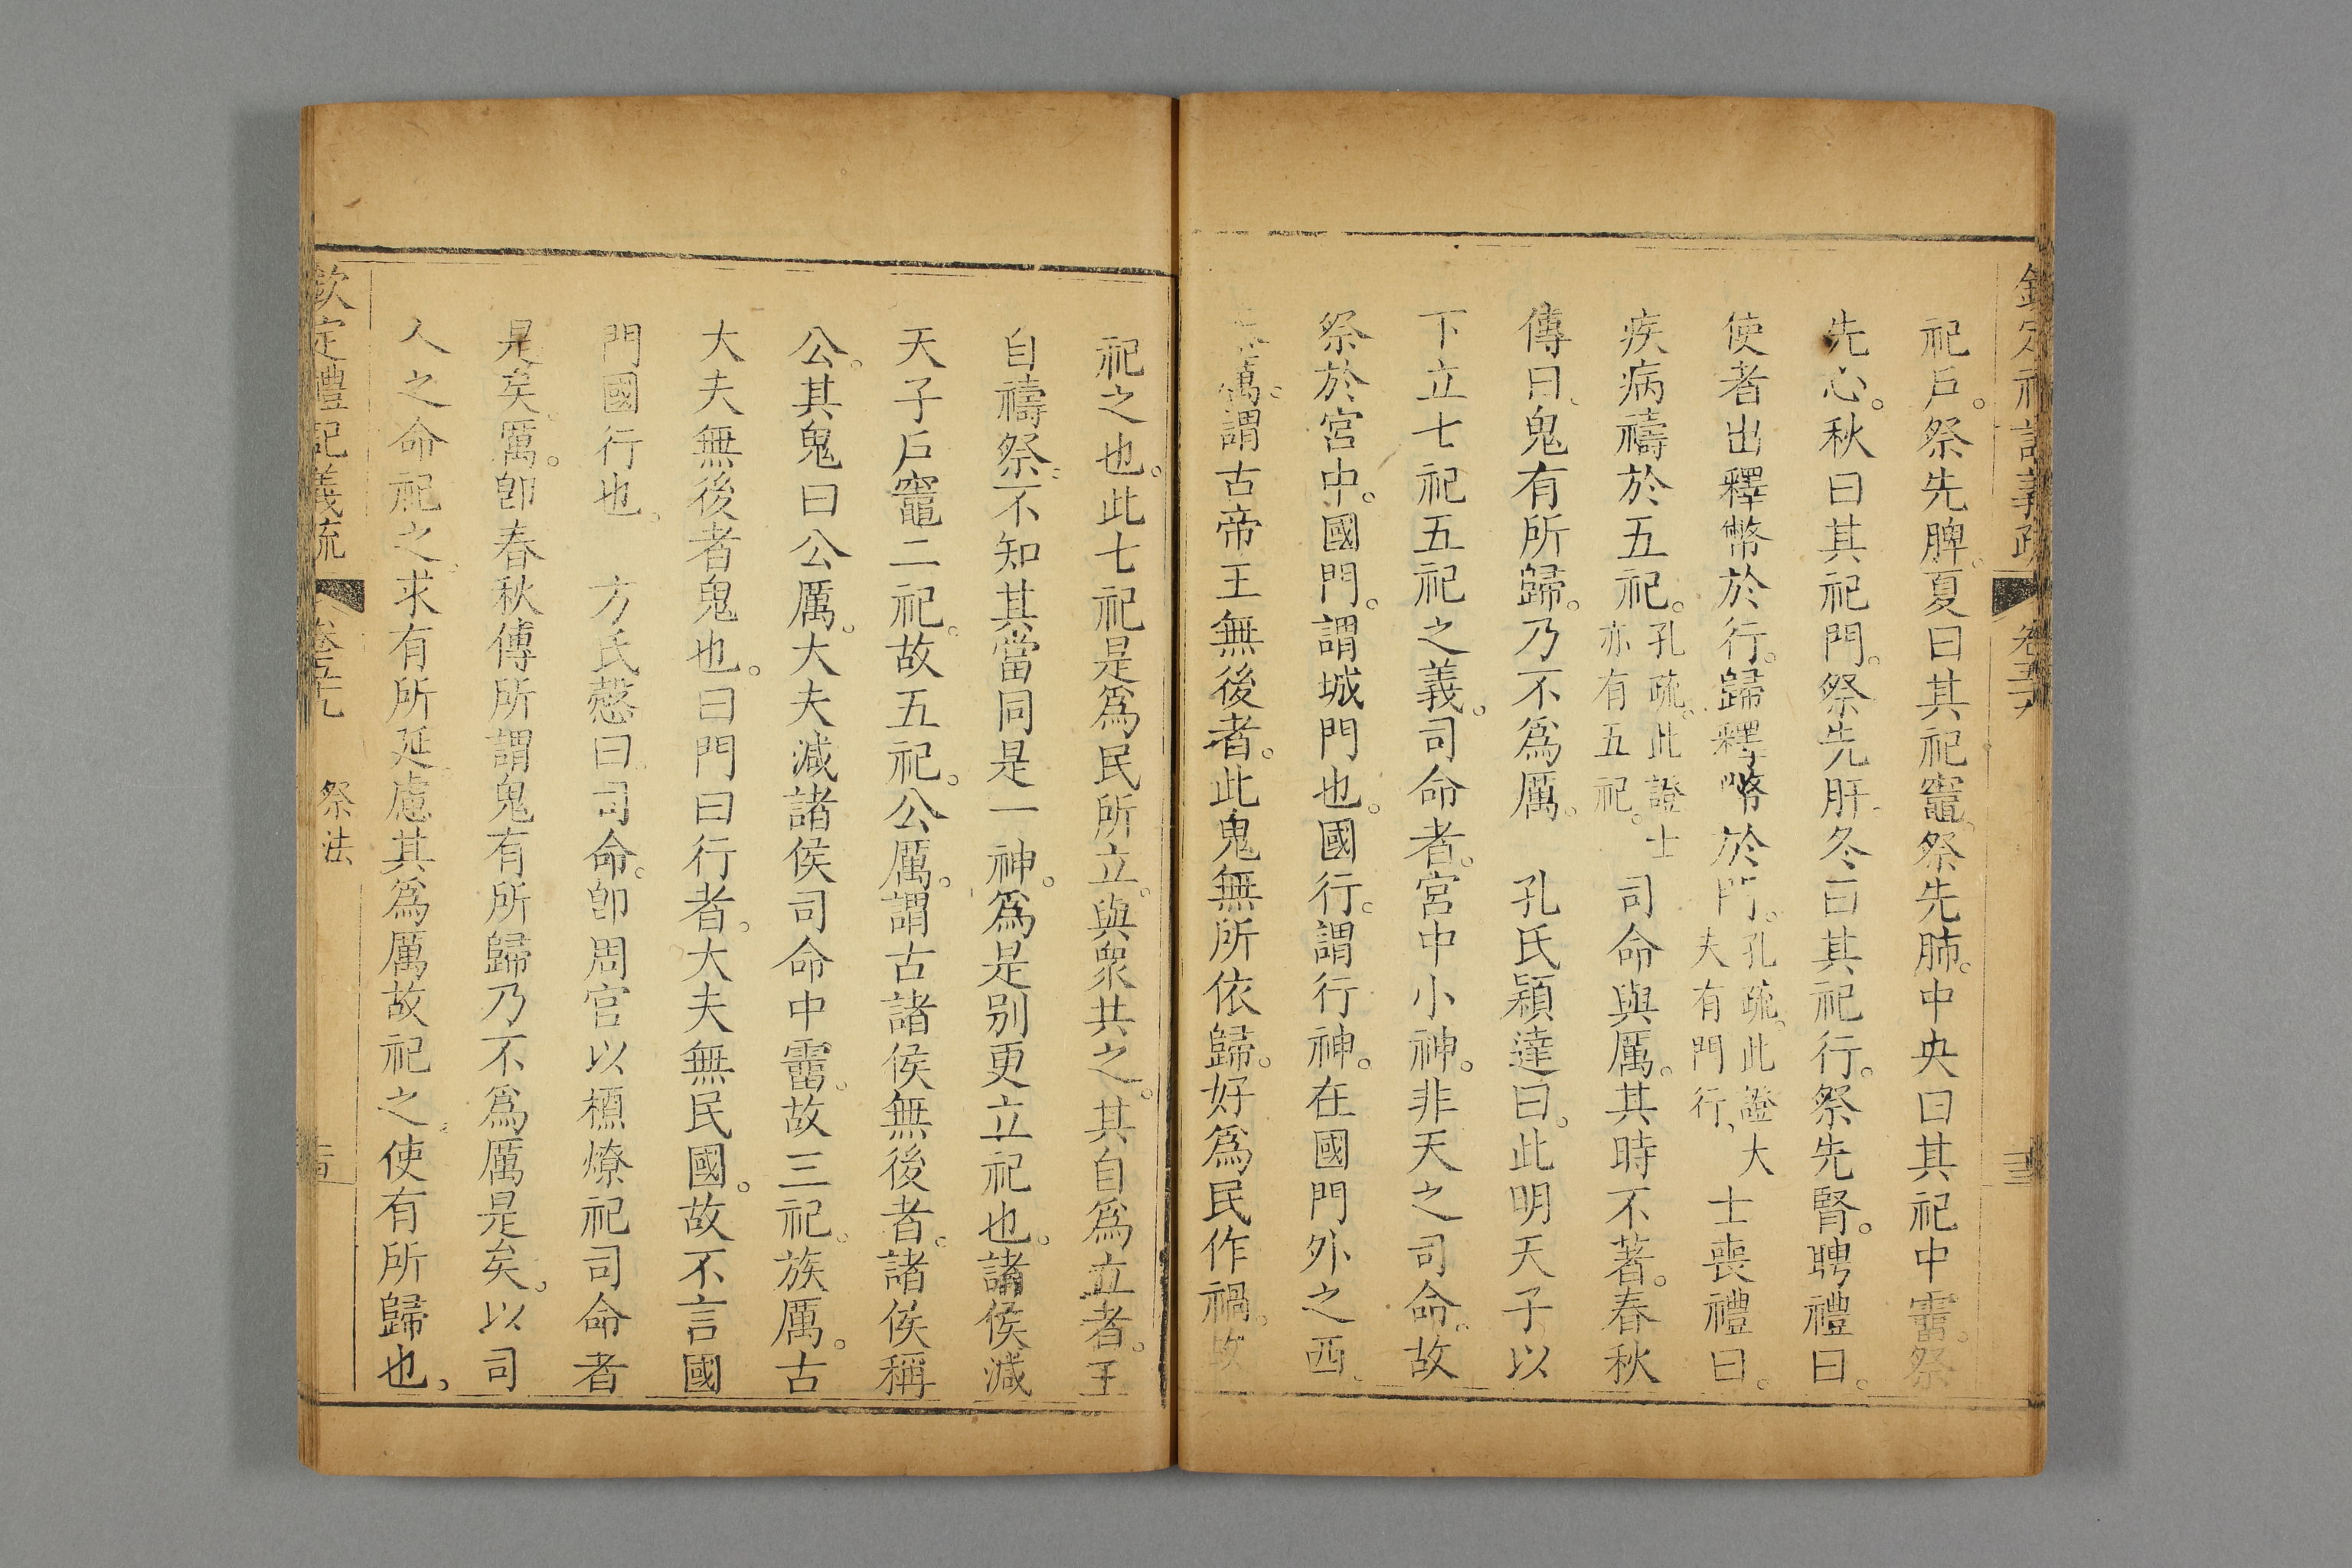 欽定禮記義疏 卷五十九
祀戶。祭先脾。夏曰其祀竈。祭先肺。中央曰其祀中霤。祭
先心。秋曰其祀門。祭先肝。冬曰其祀行。祭先腎。聘禮曰。
使者出釋幣於行。歸釋幣於門。孔疏。此證大夫有門行、士喪禮曰。
疾病禱於五祀。孔疏。此證士亦有五祀。司命與厲。其時不著。春秋
傳曰、鬼有所歸。乃不爲厲。 孔氏穎達曰。此明天子以
下立七祀五祀之義。司命者。宮中小神。非天之司命。故
祭於宮中。國門。謂城門也。國行。謂行神。在國門外之西。
厲。謂古帝王無後者。此鬼無所依歸。好爲民作禍。故
祀之也。此七祀是爲民所立。與衆共之。其自爲立者。王
自禱祭。不知其當同是一神。爲是别更立祀也。諸侯減
天子戶竈二祀。故五祀。公厲。謂古諸侯無後者。諸侯稱
公。其鬼曰公厲。大夫減諸侯司命中霤。故三祀。族厲。古
大夫無後者鬼也。曰門曰行者。大夫無民國。故不言國
門國行也。 方氏慤曰。司命。卽周官以槱燎祀司命者
是矣。厲。卽春秋傳所謂鬼有所歸乃不爲厲是矣。以司
人之命祀之。求有所延。慮其爲厲故祀之。使有所歸也。
欽定禮記義疏 卷五十九 祭法